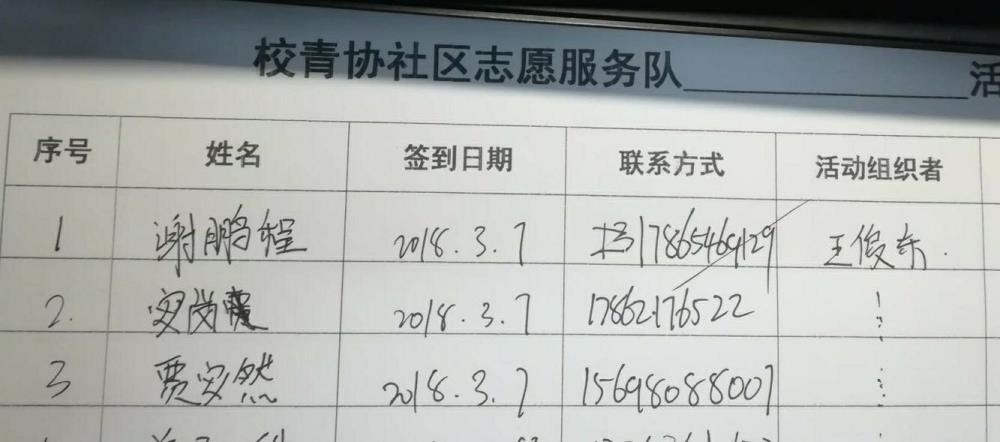 校青协社区志愿服务队____________活
序号 姓名 签到日期 联系方式 活动组织者
1 谢鹏程 2018.3.7 17865469129 王俊东.
2. 安 2018.3.7 17862176522 ⋮
3 贾安然 2018.3.7 15698088007 ⋮